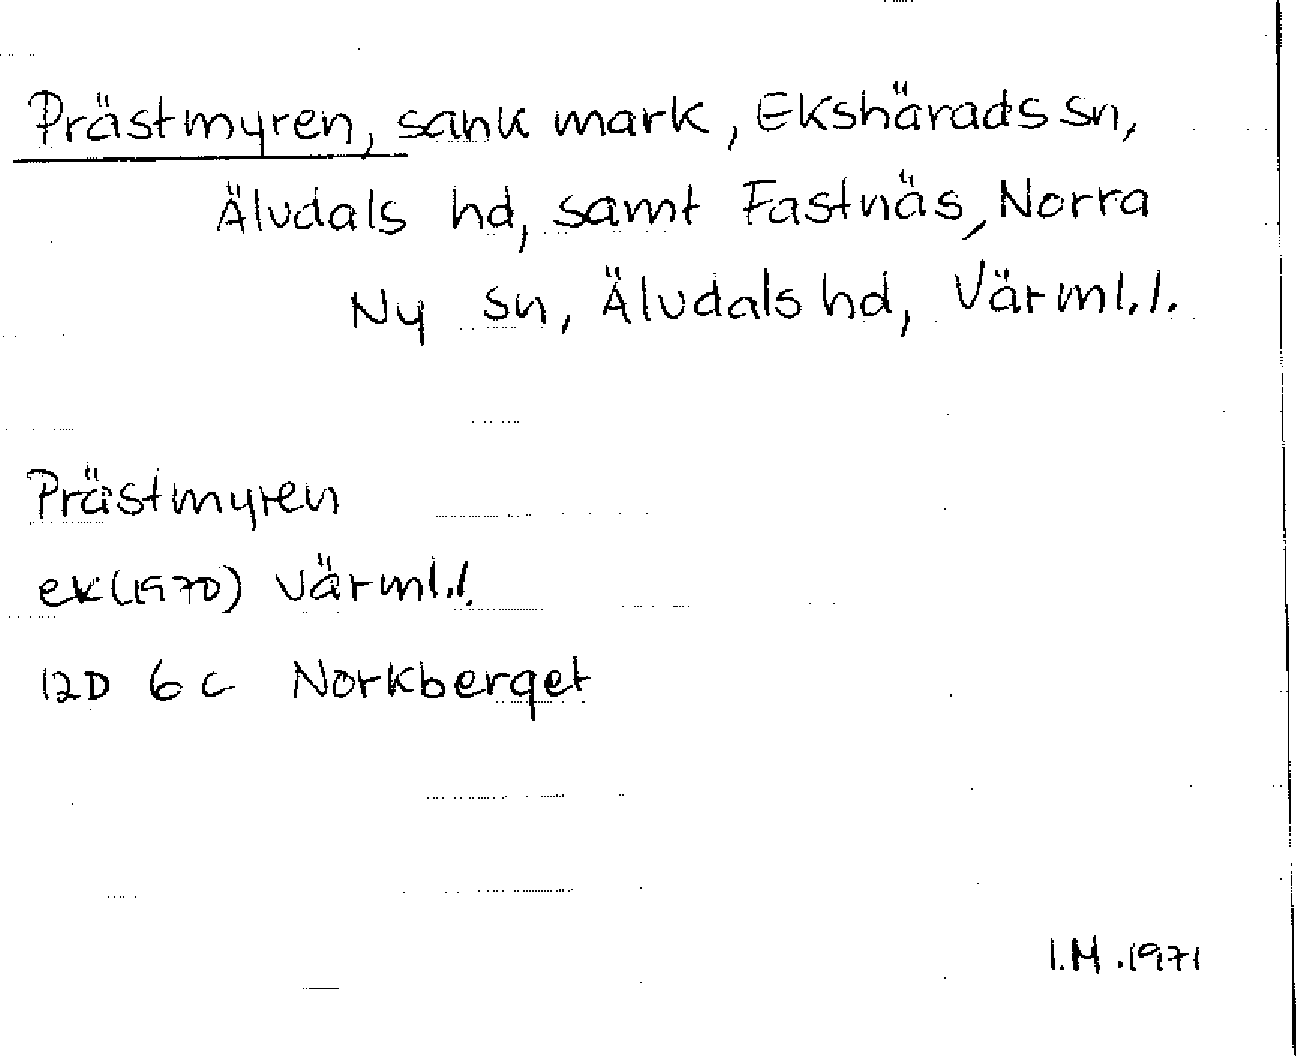 Prästmyren, sank mark, Ekshärads sn,
Älvdals hd, samt Fastnäs, Norra
Ny sn, Älvdals hd, Värml.l.
Prästmyren
ek(1970) Värml.l.
12D 6c Norkberget
I.M.1971